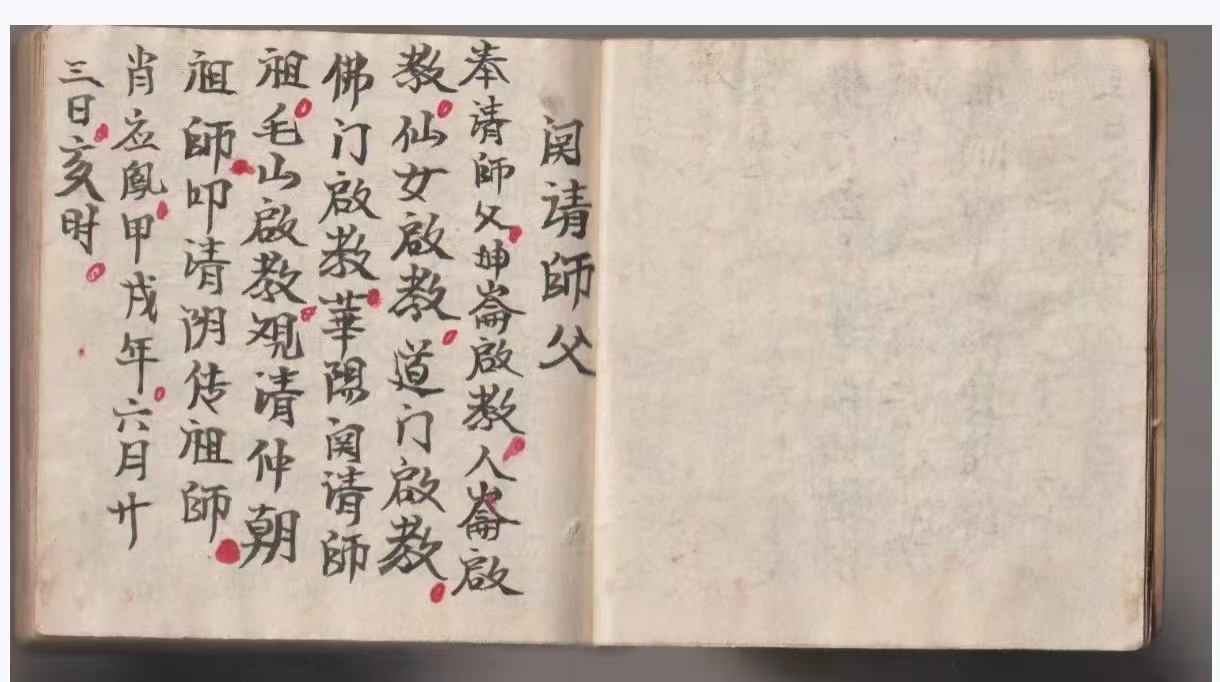 闵请師父
奉請師父坤崙啟教人崙啟
教仙女啟教道门啟教
佛门啟教華陽闵请師
祖毛山啟教观清仲朝
祖師叩清阴传祖師
肖应鳳甲戌年六月廾
三日亥时